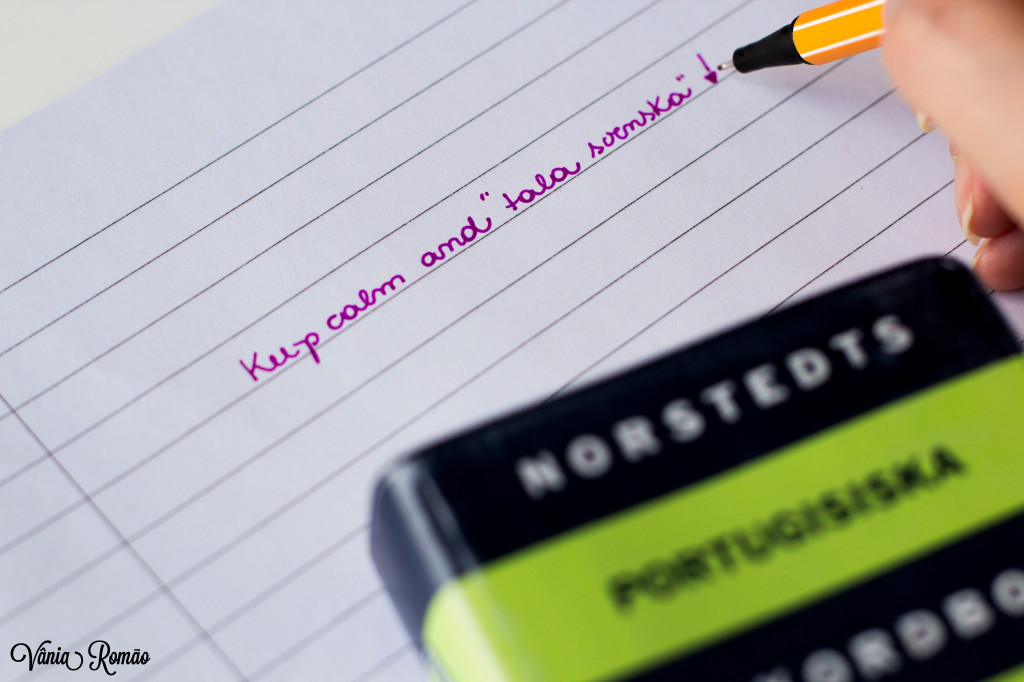 Keep calm and "tala svenska" !
NORSTEDTS
PORTUGISISKA
ORDBO
Vânia Romão